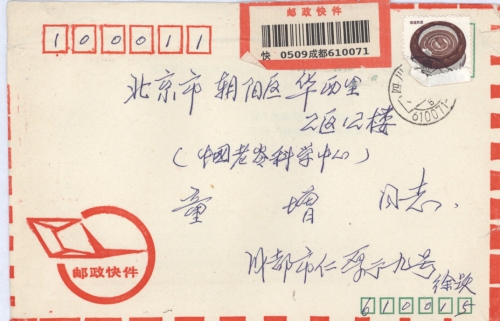 邮政快件
100011
快 0509成都610071
四川
610071
北京市 朝阳区 华西里
区 楼
(中国老龄科学中心)
童 增 同志.
邮政快件
成都市仁厚街九号
徐
610015